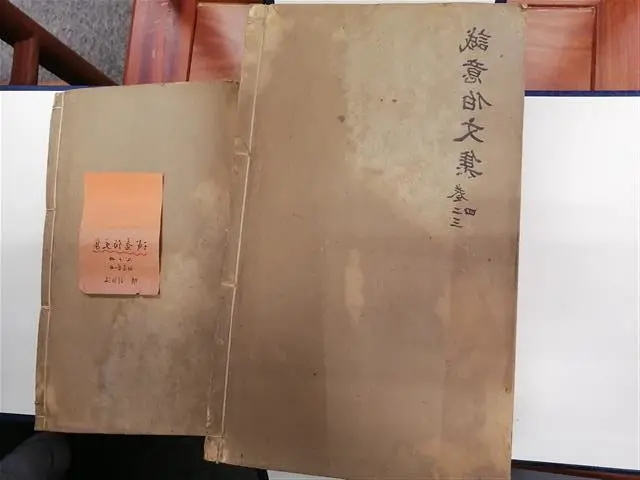 誠意伯文集 卷二三四
诚意伯文集